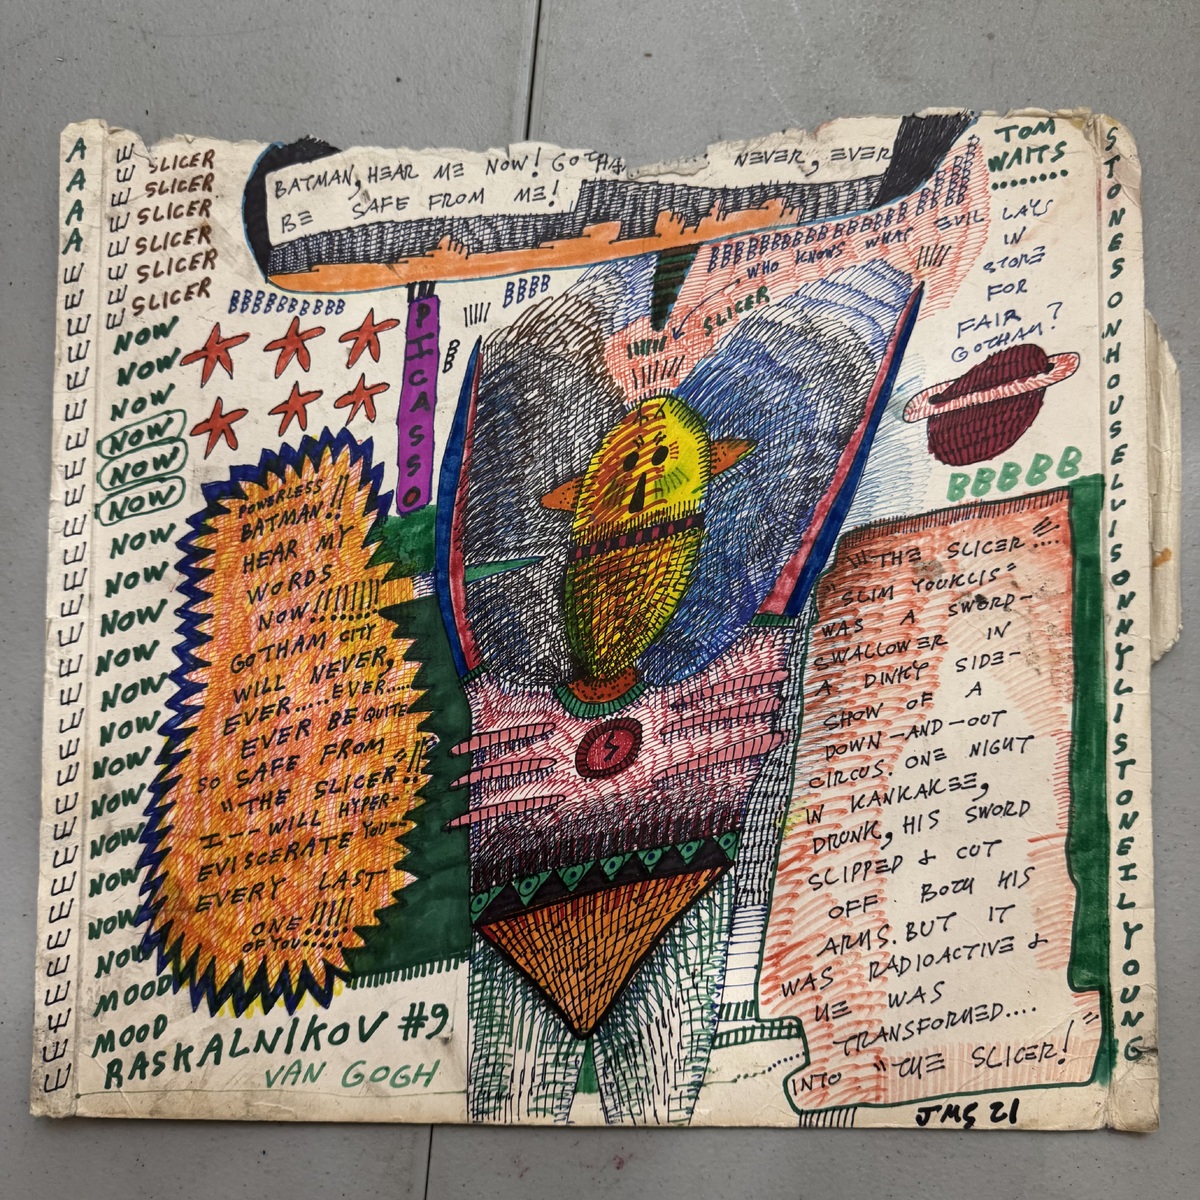 A
A
A
A
EEEEEEEEEEEEEEEEEEEEEEEEEEEEEE
EEEEEEEE
SLICER
SLICER
SLICER
SLICER
SLICER
SLICER
NOW
NOW
NOW
NOW
NOW
NOW
NOW
NOW
NOW
NOW
NOW
NOW
NOW
NOW
NOW
NOW
NOW
NOW
MOOD
MOOD
RASKALNIKOV #9
VAN GOGH
BATMAN, HEAR ME NOW! GOTHA NEVER, EVER
BE SAFE FROM ME!
BBBBBBBBBB
BBBB
B
B
PICASSO
BBBBBBBBBBBBBBBBB
WHO KNOWS WHAT EVIL
LAYS
IN
STORE
FOR
FAIR
GOTHAM?
SLICER
TOM
WAITS
........
BBBBB
POWERLESS
BATMAN!!
HEAR MY
WORDS
NOW!!!!!!!!
GOTHAM CITY
WILL NEVER,
EVER.....EVER.....
EVER BE QUITE
SO SAFE FROM
"THE SLICER"!!
I--- WILL HYPER-
EVISCERATE YOU---
EVERY LAST
ONE!!!!!
OF YOU.....
"THE SLICER"....
"SLIM YOUKLIS"
WAS A SWORD-
SWALLOWER IN
A DINKY SIDE-
SHOW OF A
DOWN-AND-OUT
CIRCUS. ONE NIGHT
IN KANKAKEE,
DRUNK, HIS SWORD
SLIPPED & CUT
OFF BOTH HIS
ARMS. BUT IT
WAS RADIOACTIVE &
HE WAS
TRANSFORMED....
INTO "THE SLICER!"
S
JMS 21
STONESONHOUSELVISONNYLISTONEILYOUNG